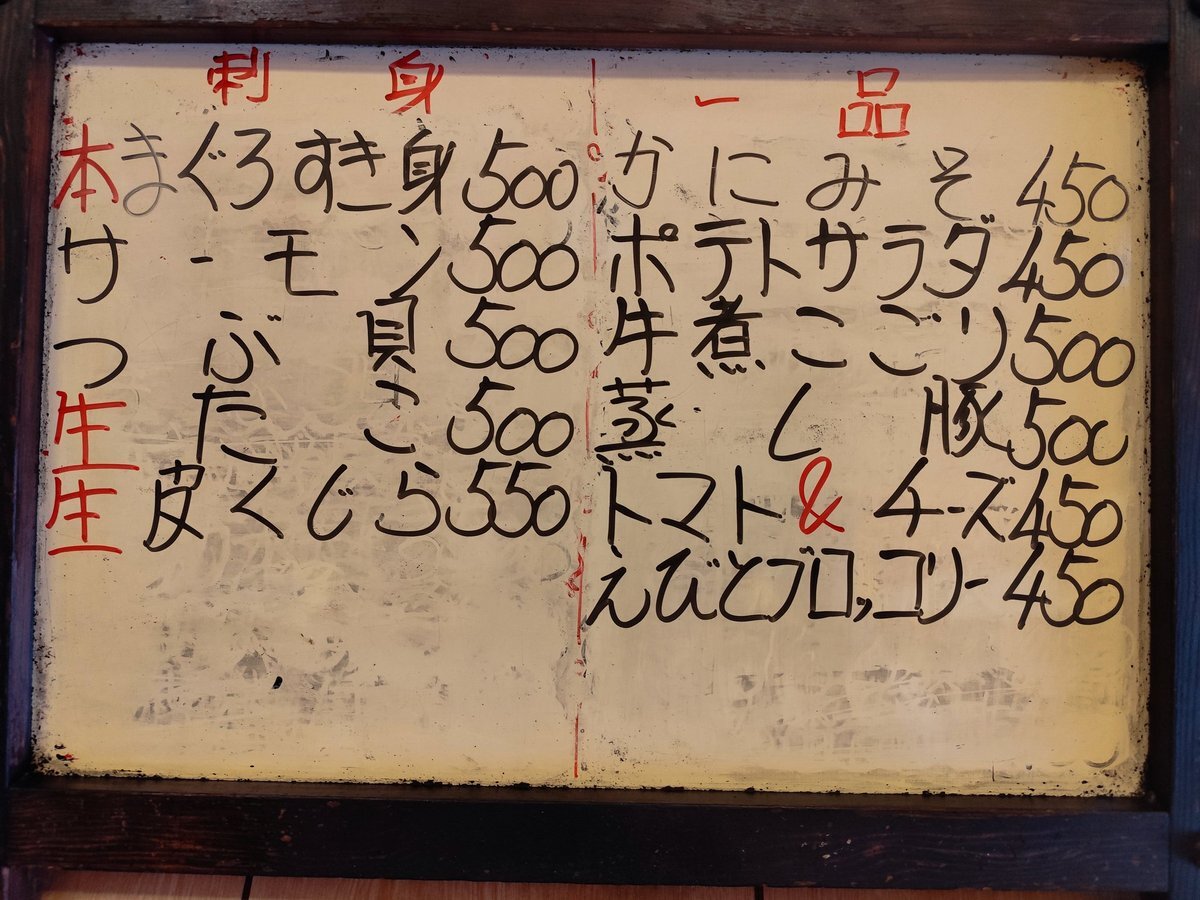 刺身
本まぐろすき身 500
サーモン 500
つぶ貝 500
生たこ 500
生皮くじら 550
一品
かにみそ 450
ポテトサラダ 450
牛煮こごり 500
蒸し豚 500
トマト&チーズ 450
えびとブロッコリー 450